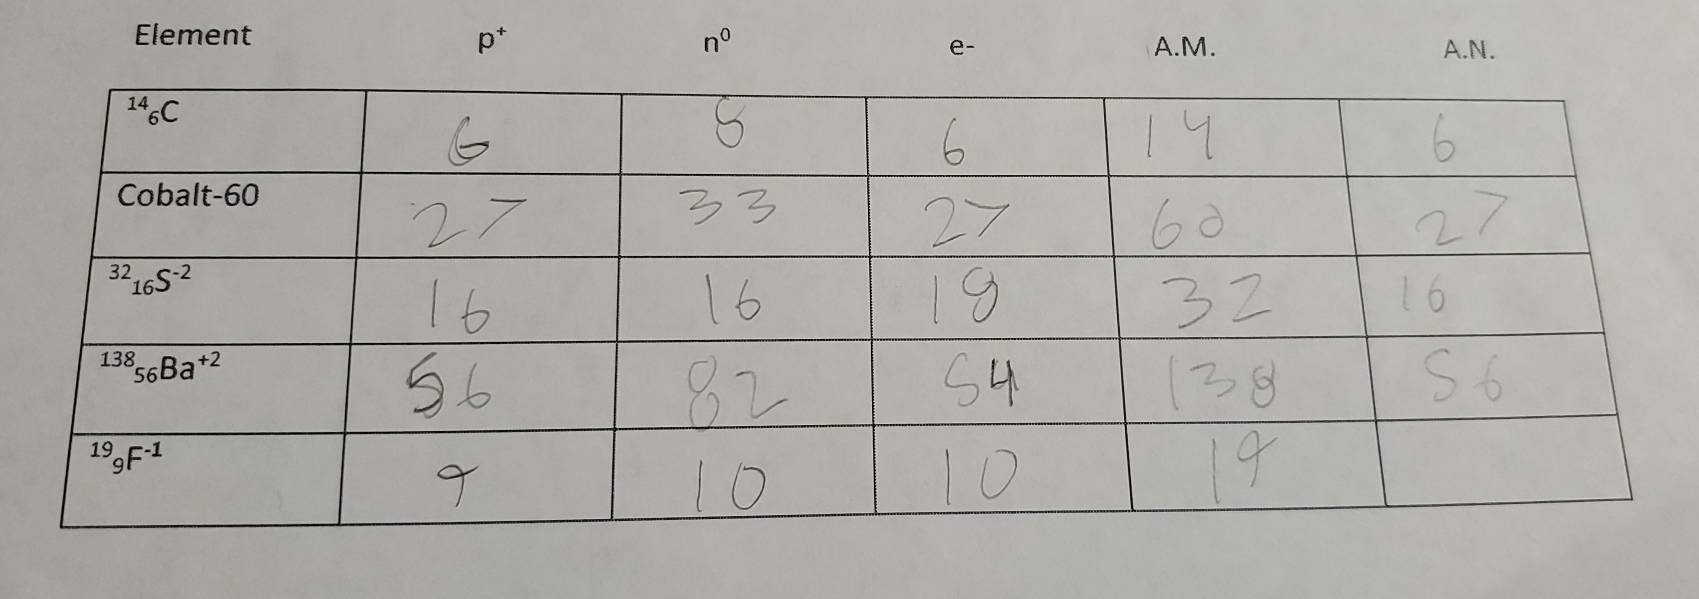 Element p⁺ n⁰ e- A.M. A.N.
¹⁴₆C 6 8 6 14 6
Cobalt-60 27 33 27 60 27
³²₁₆S⁻² 16 16 18 32 16
¹³⁸₅₆Ba⁺² 56 82 54 138 56
¹⁹₉F⁻¹ 9 10 10 19